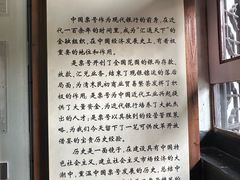 中国票号作为现代银行的前身，在近
代一百余年的时间里，成为"汇通天下"的
金融组织，在中国经济发展史上，有着极
重要的地位和作用。
是票号开创了全国范围的银两存款、
放款、汇兑业务，结束了现银镖运的落后
局面，为清末民初商业贸易繁荣发挥了积
极的作用。是票号为中国近代工业兴起提
供了大量资金，为近代银行培养了大批杰
出的人才；是票号以其独到的经营管理策
略，为我们今天留下了一笔可供改革开放
借鉴的宝贵历史经验。
历史是一面镜子，在建设具有中国特
色社会主义，建立社会主义市场经济的大
潮中，重温中国票号发展的历史，总结中